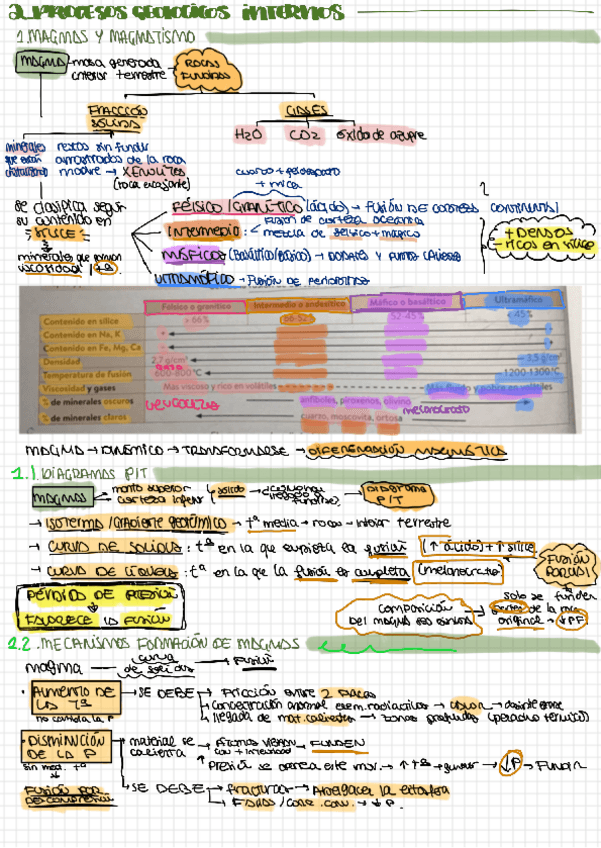 2. PROCESOS GEOLÓGICOS INTERNOS
1. MAGMAS Y MAGMATISMO
MAGMA → masa generada interior terrestre → ROCAS FUNDIDAS
FRACCIÓN SÓLIDA
GASES
minerales que están cristalizando
restos sin fundir arrancados de la roca madre → XENOLITOS (roca encajante)
H2O CO2 óxido de azufre
cuarzo + feldespato + mica
se clasifica según su contenido en SÍLICE
minerales que forman viscosidad
FÉLSICO / GRANÍTICO (ácido) → FUSIÓN DE CORTEZA CONTINENTAL
Intermedio: Fusión de corteza oceánica
mezcla de félsico + máfico
MÁFICOS (Basáltico/básico) → DORSALES Y PUNTOS CALIENTES
ULTRAMÁFICO → FUSIÓN DE PERIDOTITAS
+ DENSOS
- RICOS EN SÍLICE
Félsico o granítico Intermedio o andesítico Máfico o basáltico Ultramáfico
Contenido en sílice > 66% 66-52% 52-45% < 45%
Contenido en Na, K + -
Contenido en Fe, Mg, Ca - +
Densidad 2,7 g/cm³ 3,5 g/cm³
Temperatura de fusión 600-800 °C 1200-1300°C
Viscosidad y gases Más viscoso y rico en volátiles Más fluido y pobre en volátiles
% de minerales oscuros leucocrático anfíboles, piroxenos, olivino melanocrático
% de minerales claros cuarzo, moscovita, ortosa
MAGMA → DINÁMICO → TRANSFORMARSE → DIFERENCIACIÓN MAGMÁTICA
1.1. DIAGRAMAS P/T
MAGMAS manto superior corteza inferior sólido → DIAGRAMA P/T
→ ISOTERMA / GRADIENTE GEOTÉRMICO → tª media → roca → interior terrestre
→ CURVA DE SOLIDUS: tª en la que empieza la fusión (↑ ácido) + ↑ sílice
→ CURVA DE LIQUIDUS: tª en la que la fusión es completa (melanocrático)
FUSIÓN PARCIAL
PÉRDIDA DE PRESIÓN
↓
FAVORECE LA FUSIÓN
COMPOSICIÓN DEL MAGMA
solo se funden partes de la roca original → ↓PF
1.2. MECANISMOS FORMACIÓN DE MAGMAS
magma curva de solidus → FUSIÓN
· AUMENTO DE LA Tª
no cambia la P
→ SE DEBE → FRICCIÓN ENTRE 2 PLACAS
→ Concentración anormal elem. radiactivos → CALOR → desintegrarse
→ llegada de mat. calientes → zonas profundas (penacho térmico)
· DISMINUCIÓN DE LA P
sin mod. tª
FUSIÓN POR DESCOMPRESIÓN
→ material se calienta → ÁTOMOS VIBRAN con + intensidad → FUNDEN
Presión → ↑↑ tª → ↓P → FUNDIR
→ SE DEBE → fracturar → Adelgazar la litosfera